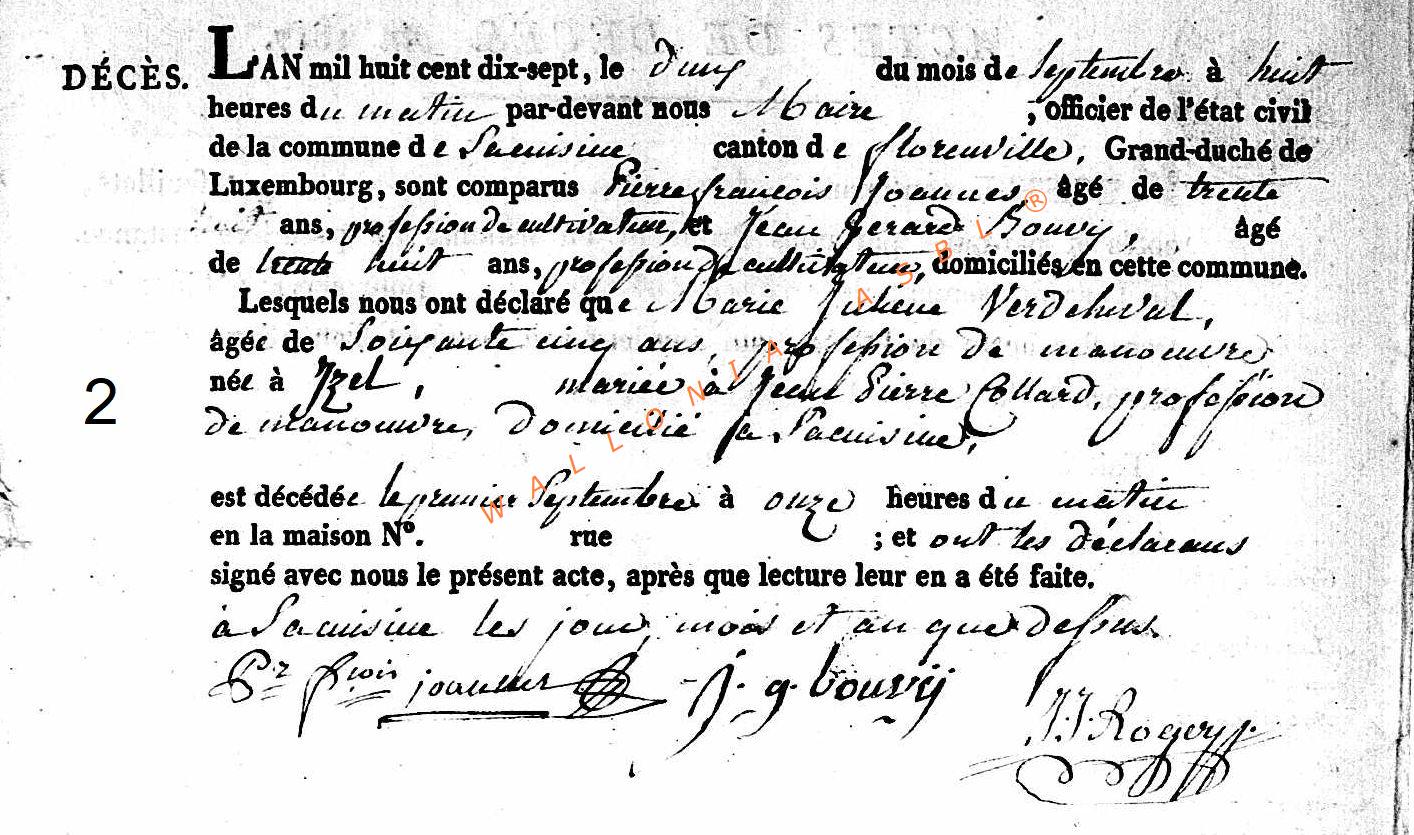 DÉCÈS. L'AN mil huit cent dix-sept, le deux du mois de septembre à huit
heures du matin par-devant nous Maire ; officier de l'état civil
de la commune de Lacuisine canton de florenville, Grand-duché de
Luxembourg, sont comparus Pierre françois Joannes, âgé de trente
huit ans, profession de cultivateur, et Jean Gerard Bouvy, âgé
de trente huit ans, profession de cultivateur, domiciliés en cette commune.
Lesquels nous ont déclaré que Marie Juliene Verdcheval,
âgée de Soixante cinq ans, profession de manouvre
née à Izel, mariée à Jean Pierre Collard, profession
2
de manouvre, domicilié à Lacuisine,
est décédée le premier Septembre à onze heures du matin
en la maison N°. rue ; et ont les déclarans
signé avec nous le présent acte, après que lecture leur en a été faite.
à Lacuisine les jour, mois et an que dessus.
Pr frois joannes j. g. bouvy
J.J. Rogery
WALLONIA ASBL ®